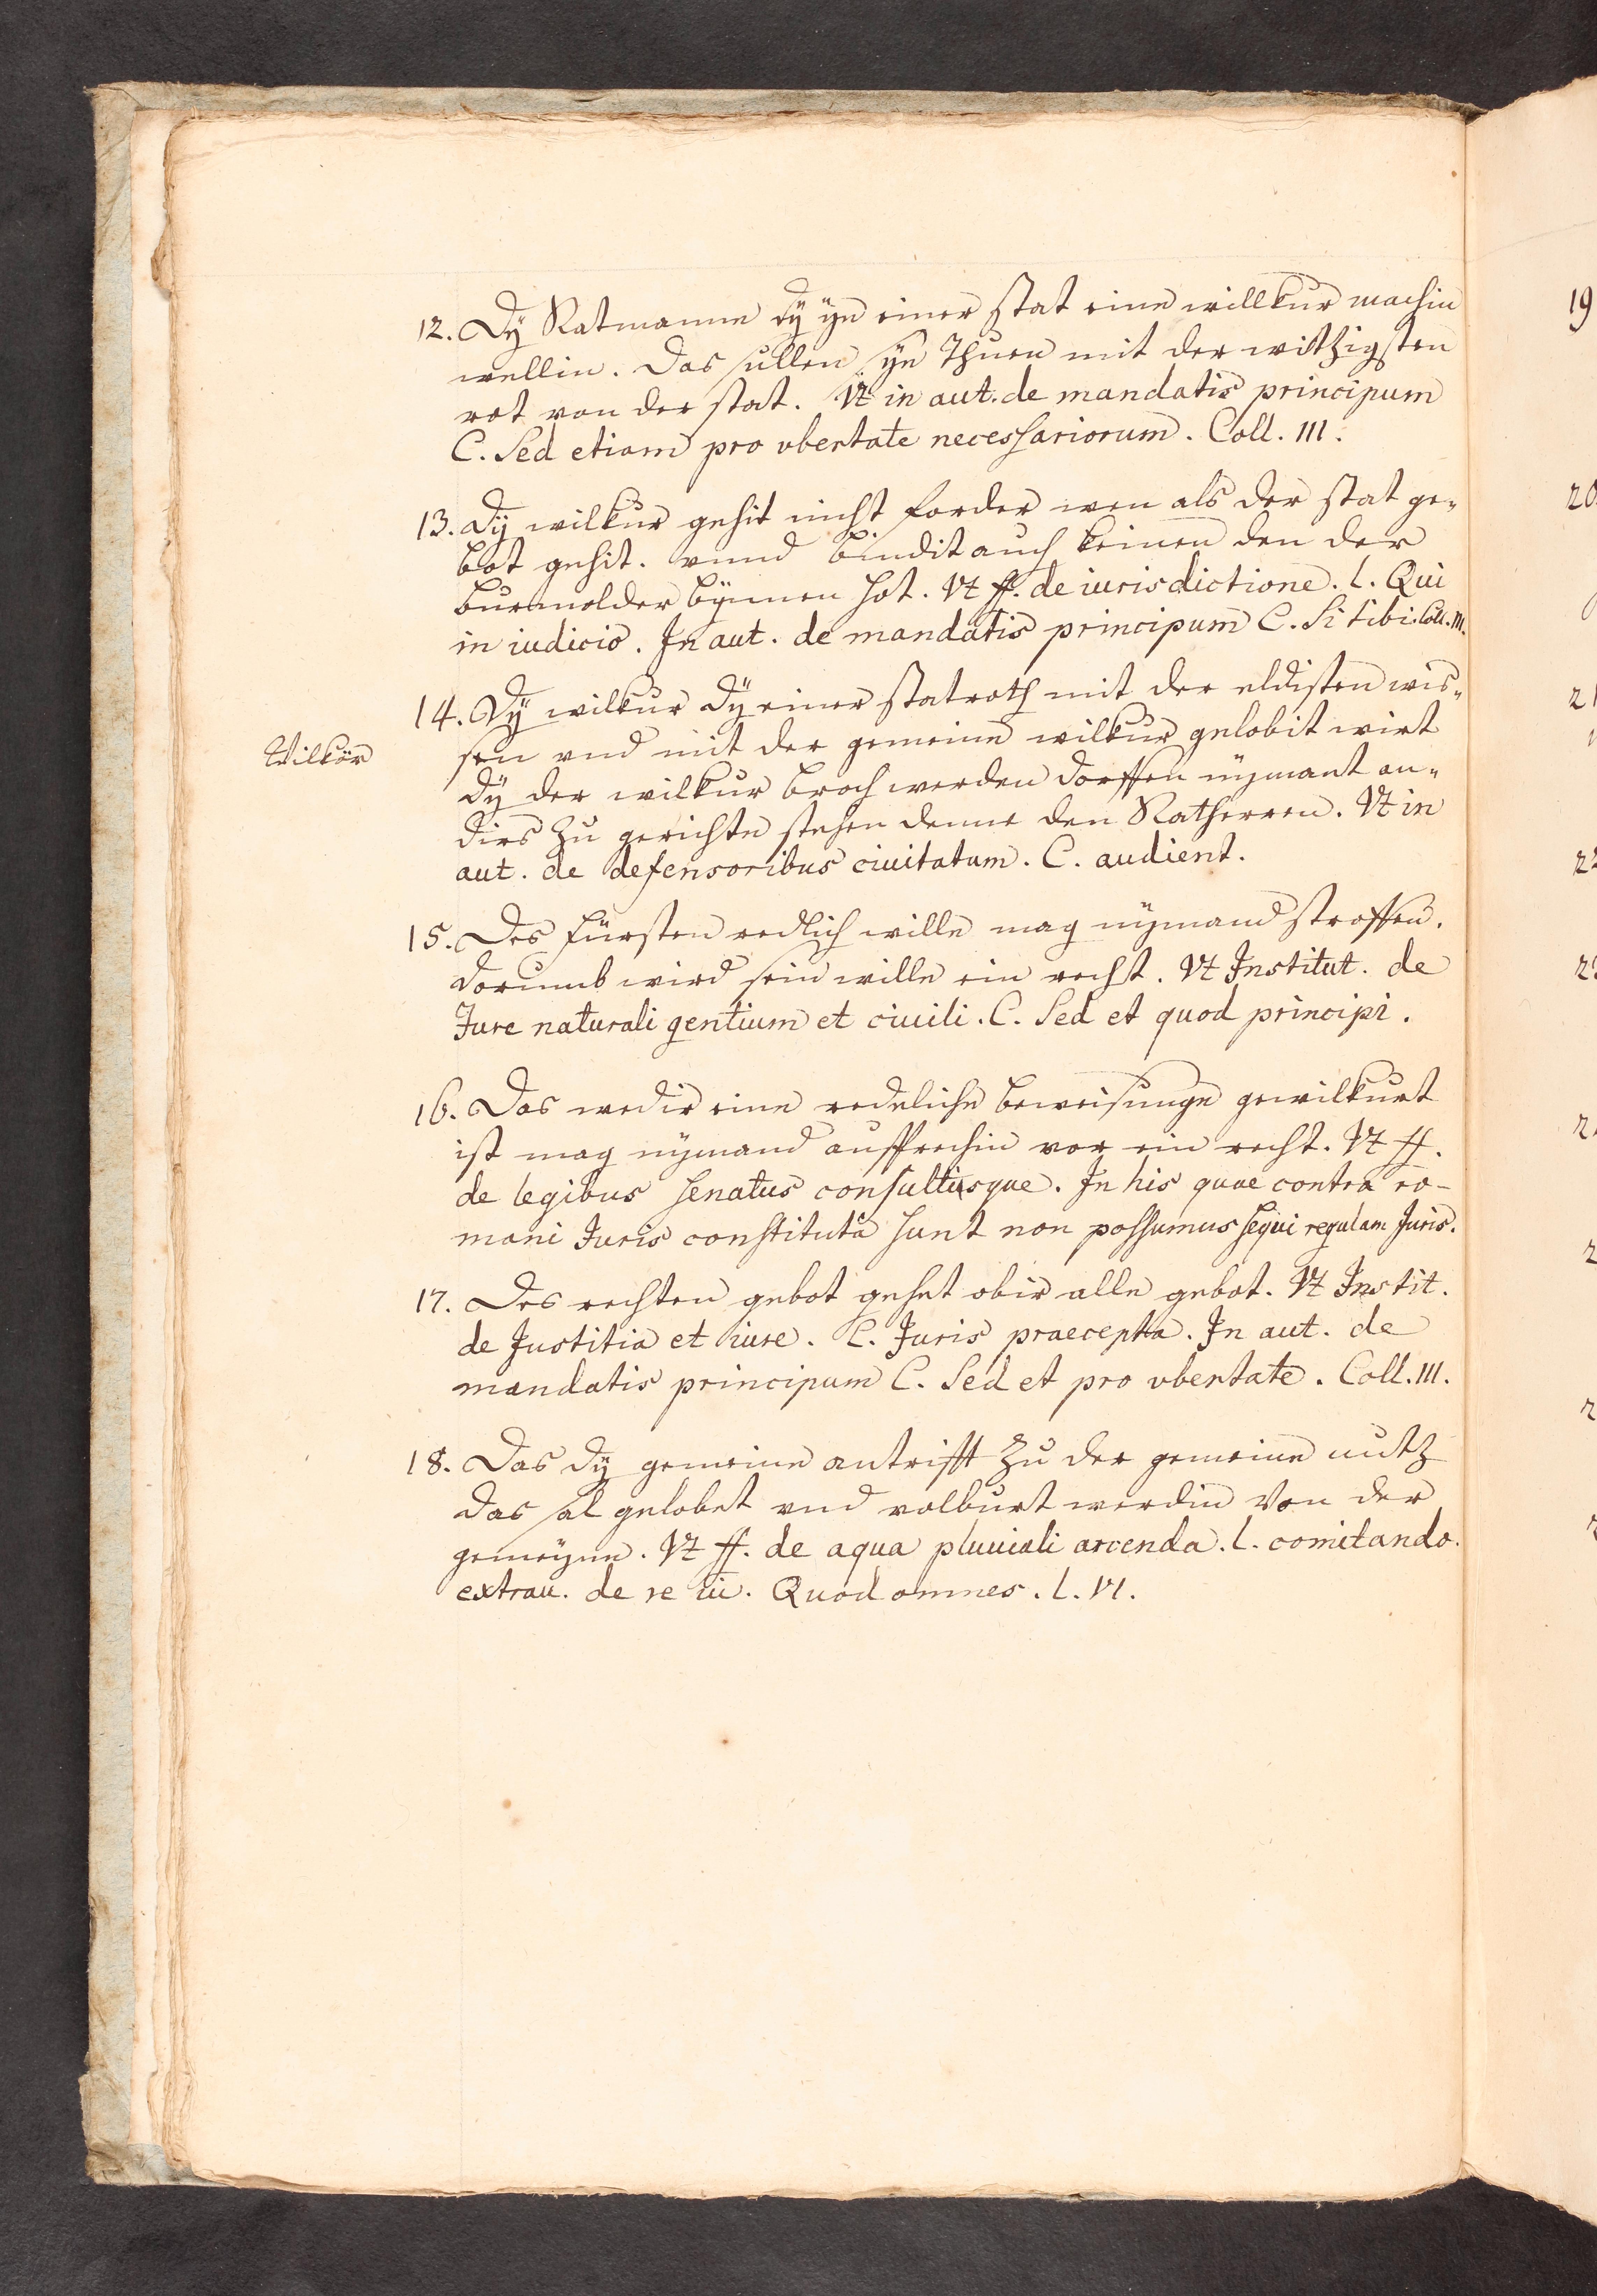 12. Dÿ Ratmanne dÿ ÿn einer stat eine willkur machin
wellin. Das sullen sÿ Thuen mit der withzigsten
rot von der stat. Vt in aut. de mandatis principum
C. Sed etiam pro vbertate necessariorum. Coll. III.
13. Dÿ wilkur gehit nicht forder wen als der stat ge„
bot gehit. vnnd bindit auch keinen den der
burmolder bÿnnen hot. Vt ff. de iurisdictione. l. Qui
in iudicio. In aut. de mandatis principum C. Si tibi. Coll. III.
14. Dÿ wilkur dÿ einer statroth mit der eldisten wis„
Wilkör
sen vnd mit der gemeine wilkur gelobit wirt
dÿ der wilkur broch werden dorffen nÿmant an„
dirs zu gerichte stehen denne den Ratherren. Vt in
aut. de defensoribus ciuitatum. C. audient.
15. Des fürsten redlich wille mag nÿmand stroffen.
dorumb wird sein wille ein recht. Vt Institut. de
Jure naturali gentium et ciuili. C. Sed et quod principi.
16. Das wedir eine redeliche beweisunge gewilkurt
ist mag nÿmand aufsprechin vor ein recht. Vt ff.
de legibus senatus consultusque. In his quae contra ro-
mani Juris constituta sunt non possumus sequi regulam Juris.
17. Des rechten gebot gehet obir alle gebot. Vt Instit.
de Justitia et iure. C. Juris praecepta. In aut. de
mandatis principum C. Sed et pro vbertate. Coll. III.
18. Das dÿ gemeine antrifft zu der gemeine nutz
das sal gelobet vnd volburt werdin von der
gemeÿnn. Vt ff. de aqua pluuiali arcenda. l. comitando.
extrau. de re iu. Quod omnes. l. VI.
19
20
21
22